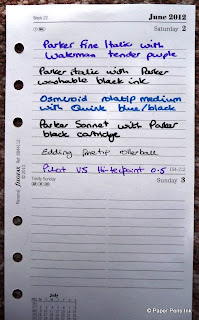 Week 22
June 2012
Saturday 2
Parker Fine Italic with
Waterman tender purple
Parker italic with Parker
washable black ink
Osmiroid rolatip medium
with Quink blue/black
Parker Sonnet with Parker
black cartridge
Edding finetip rollerball
Pilot V5 Hi-tecpoint 0.5
Trinity Sunday
Sunday 3
July
© Paper Pens Ink